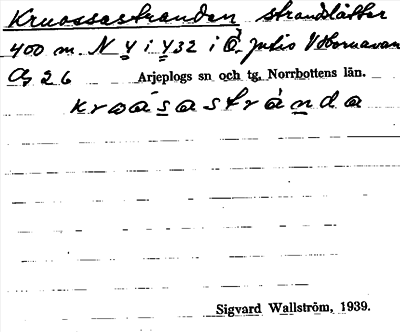 Kruossastranden strandslåtter
400 m. N y i y32 i Ö. 
Og 26 Arjeplogs sn och tg. Norrbottens län.
kroasastranda
Sigvard Wallström, 1939.